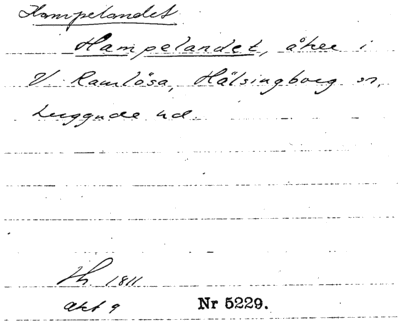 Hampelandet
Hampelandet, åker i
V Ramlösa, Hälsingborg sn,
Luggude hd.
Lh. 1811
akt 9 Nr 5229.